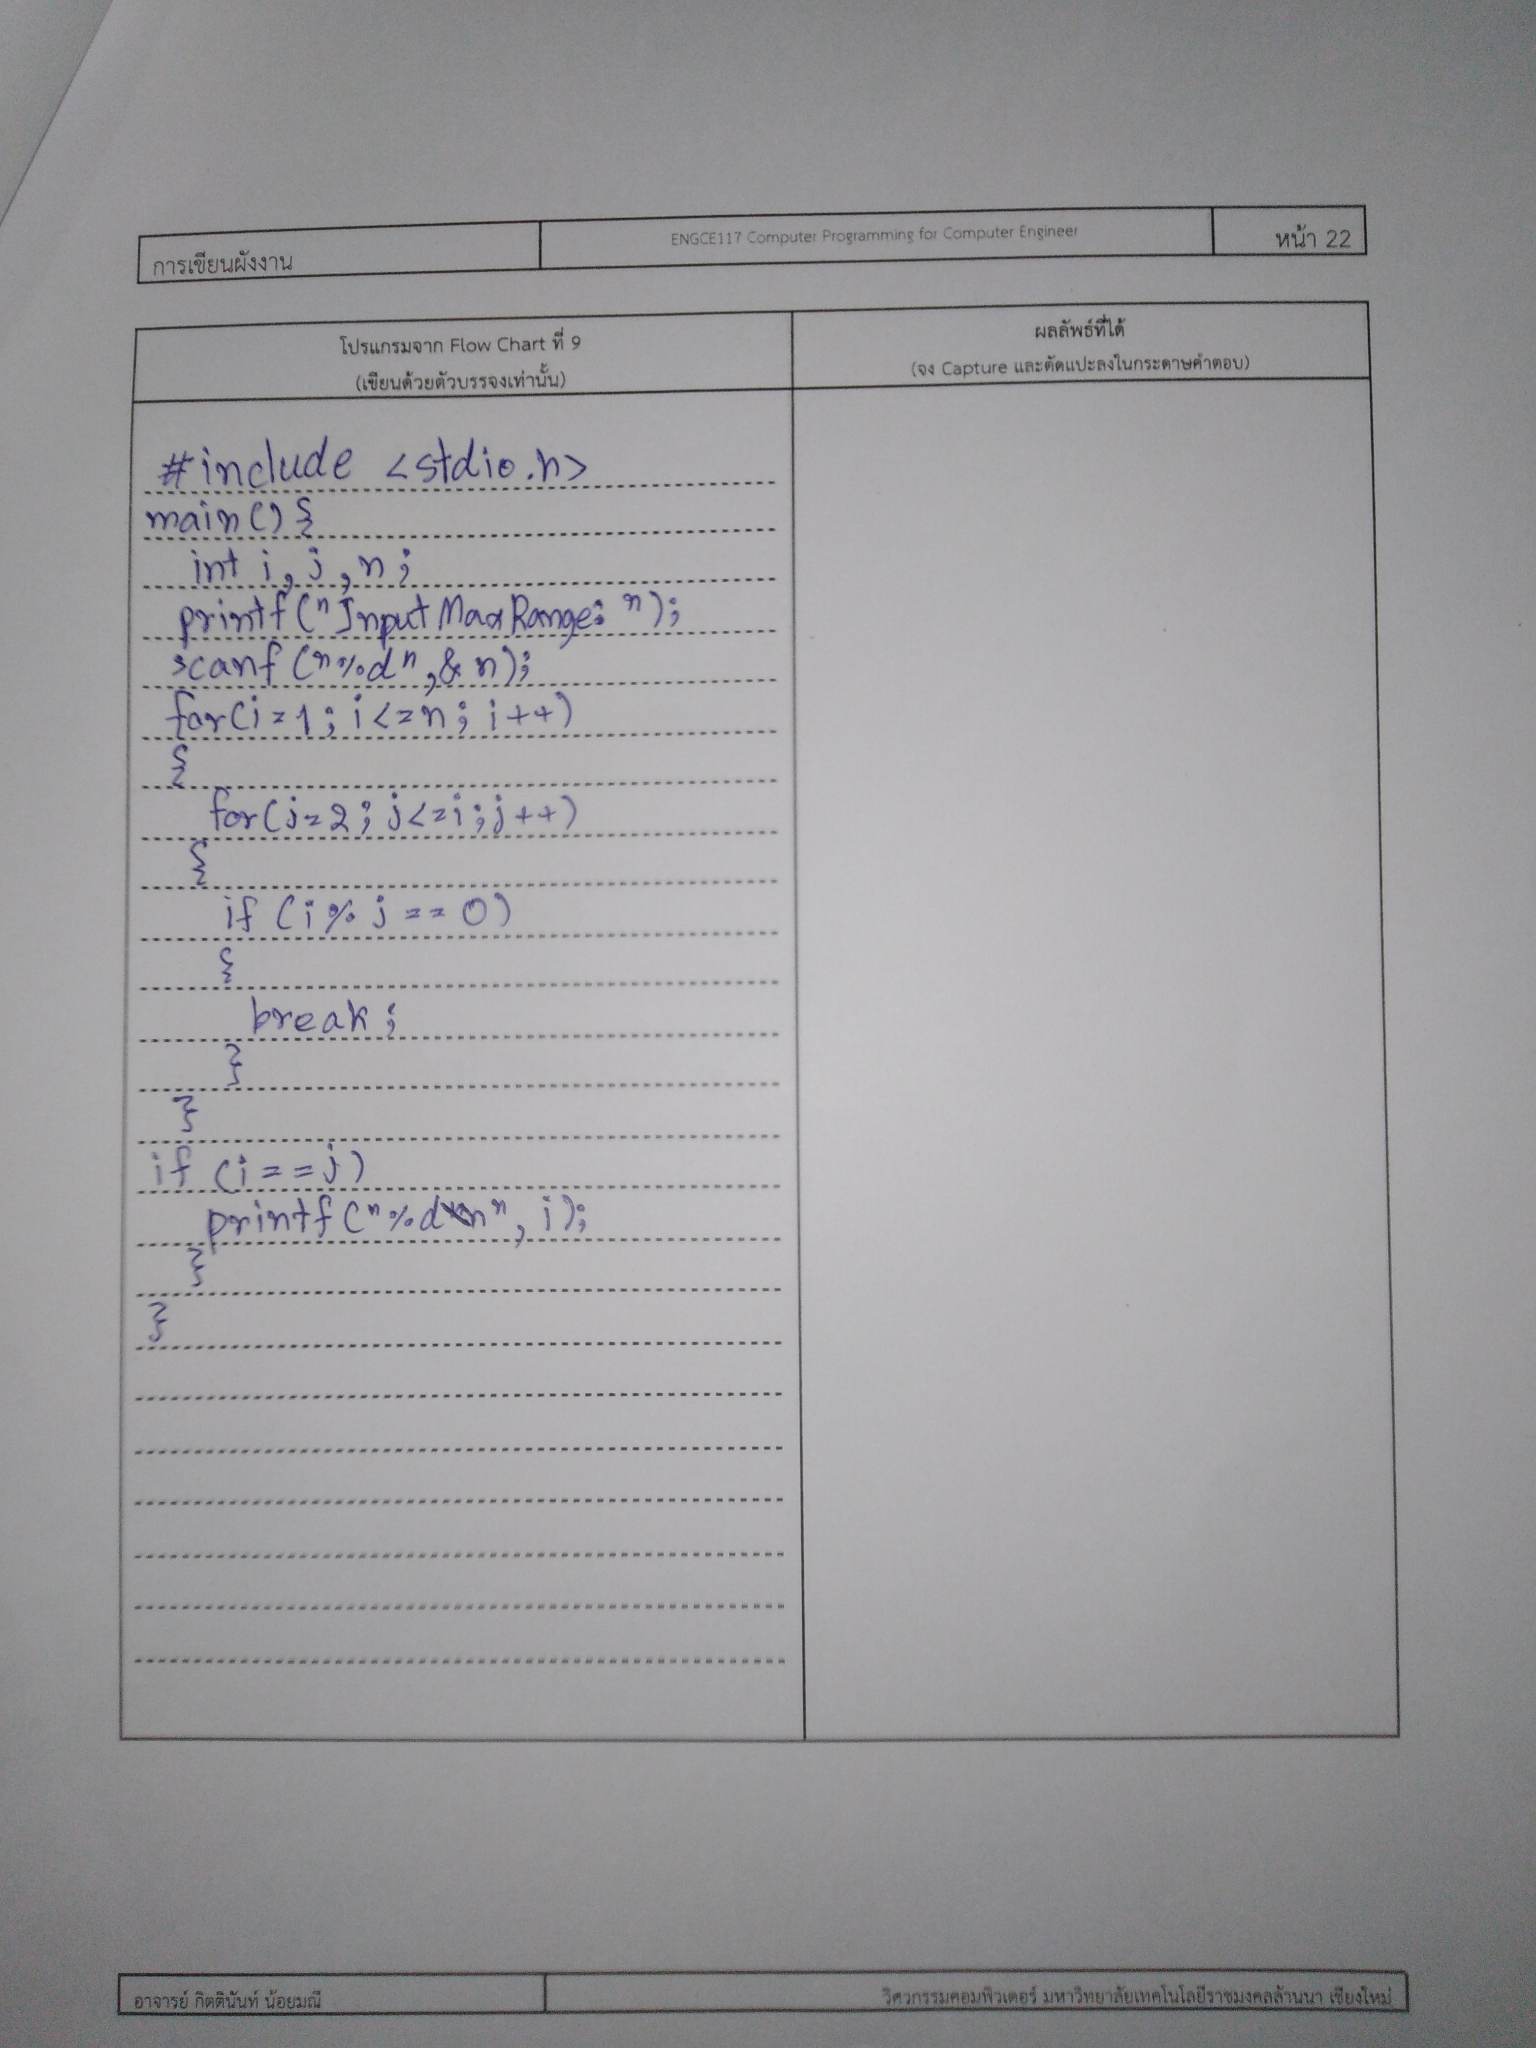 การเขียนผังงาน
ENGCE117 Computer Programming for Computer Engineer
หน้า 22
โปรแกรมจาก Flow Chart ที่ 9
(เขียนด้วยตัวบรรจงเท่านั้น)
ผลลัพธ์ที่ได้
(จง Capture และตัดแปะลงในกระดาษคำตอบ)
#include <stdio.h>
main() {
int i, j, n;
printf("Input Max Range: ");
scanf("%d", & n);
for(i=1; i<=n; i++)
{
for(j=2; j<=i; j++)
{
if (i % j == 0)
{
break;
}
}
if (i==j)
printf("%d\n", i);
}
}
อาจารย์ กิตตินันท์ น้อยมณี
วิศวกรรมคอมพิวเตอร์ มหาวิทยาลัยเทคโนโลยีราชมงคลล้านนา เชียงใหม่